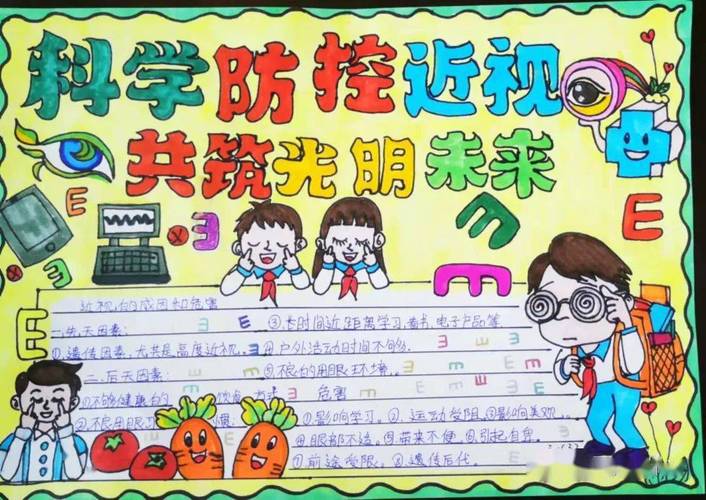 科学防控近视
共筑光明未来
E
E
E
近视的成因和危害
一.先天因素: E ③长时间近距离学习,看书,电子产品等
①遗传因素,尤其是高度近视.. ④户外活动时间不够.
二.后天因素: ⑤不良的用眼环境..
①不够健康的 饮食方式 危害
②不良用眼习惯: ①影响学习.② 运动受阻.③影响美观..
④眼部不适.⑤带来不便.⑥引起自卑.
⑦前途受限.⑧遗传后代.